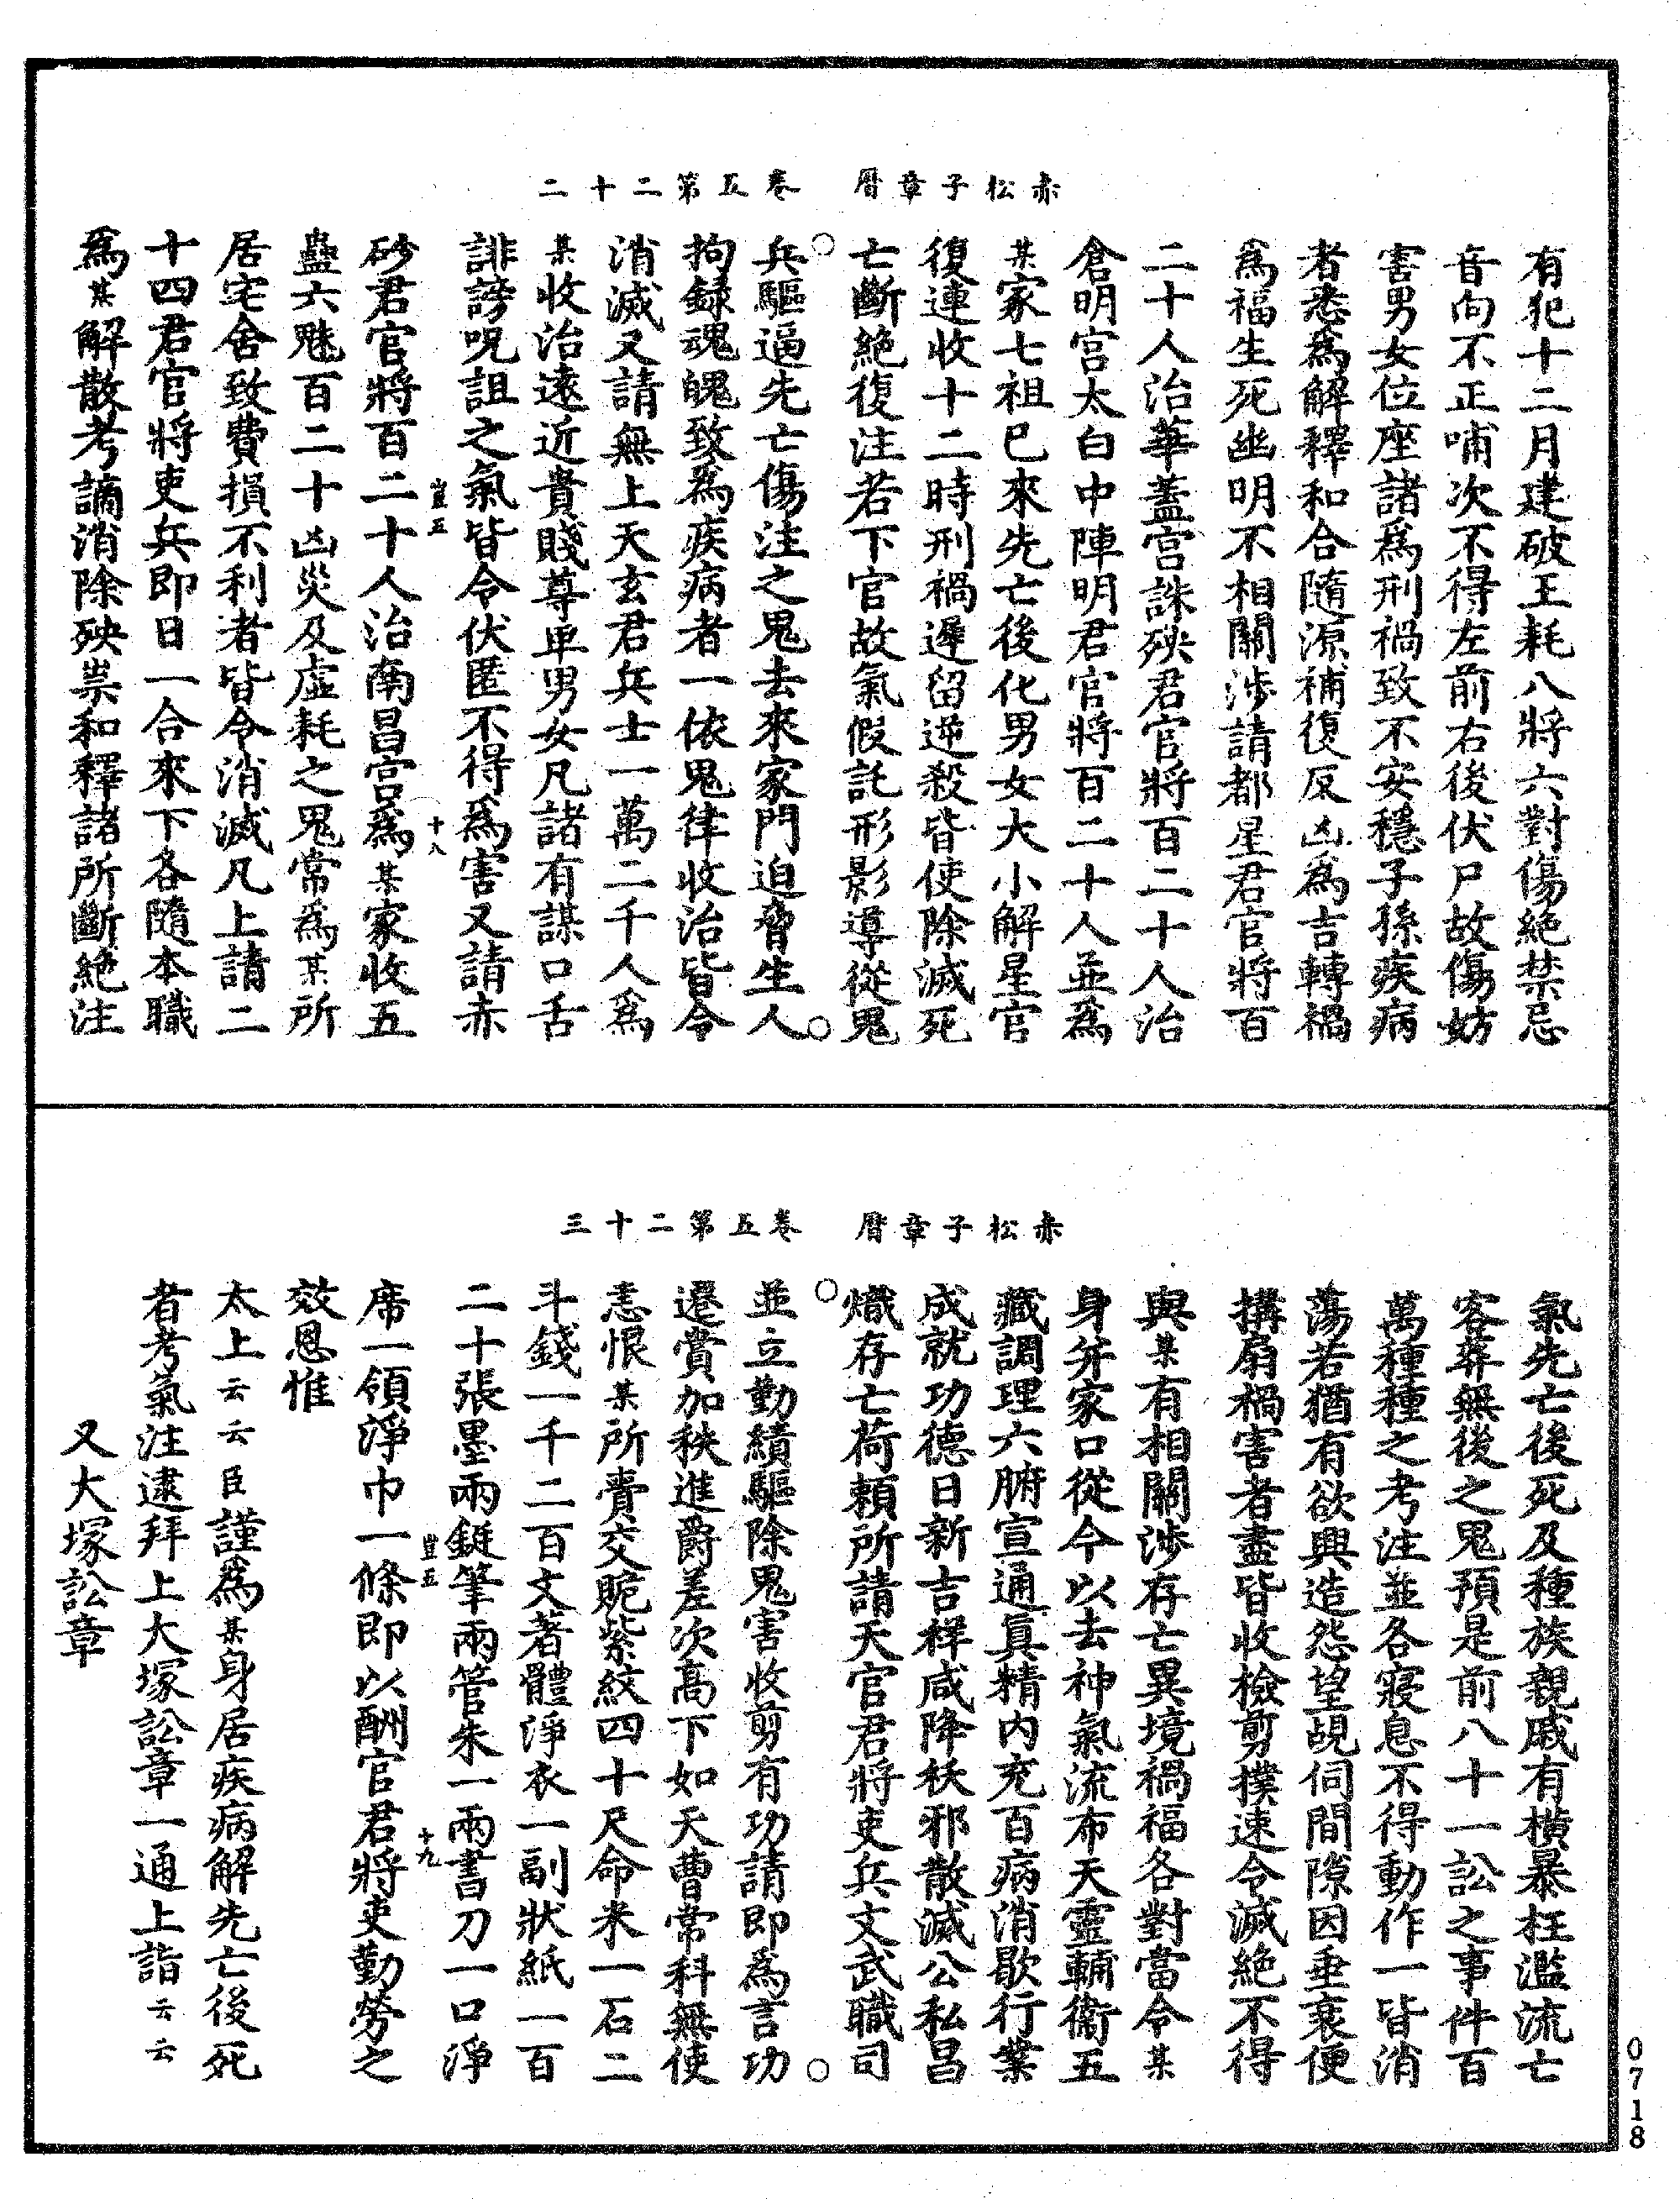 赤松子章曆　卷五第二十二
有犯十二月建破王耗八將六對傷絕禁忌
音向不正哺次不得左前右後伏尸故傷妨
害男女位座諸爲刑禍致不安穩子孫疾病
者悉爲解釋和合隨源補復反凶爲吉轉禍
爲福生死幽明不相關涉請都星君官將百
二十人治華蓋宮誅殃君官將百二十人治
倉明宮太白中陣明君官將百二十人並爲
某家七祖已來先亡後化男女大小解星官
復連收十二時刑禍遲留逆殺皆使除滅死
亡斷絕復注若下官故氣假託形影導從鬼
兵驅逼先亡傷注之鬼去來家門迫脅生人
拘録魂魄致爲疾病者一依鬼律收治皆令
消滅又請無上天玄君兵士一萬二千人爲
某收治遠近貴賤尊卑男女凡諸有謀口舌
誹謗呪詛之氣皆令伏匿不得爲害又請赤
豈五　十八
砂君官將百二十人治南昌宮爲某家收五
蠱六魅百二十凶災及虛耗之鬼常爲某所
居宅舍致費損不利者皆令消滅凡上請二
十四君官將吏兵即日一合來下各隨本職
爲某解散考謫消除殃祟和釋諸所斷絕注
赤松子章曆　卷五第二十三
氣先亡後死及種族親戚有橫暴枉濫流亡
客葬無後之鬼預是前八十一訟之事件百
萬種種之考注並各寢息不得動作一皆消
蕩若猶有欲興造怨望覘伺間隙因垂衰便
搆扇禍害者盡皆收檢剪撲速令滅絕不得
與某有相關涉存亡異境禍福各對當令某
身并家口從今以去神氣流布天靈輔衞五
藏調理六腑宣通眞精內充百病消歇行業
成就功德日新吉祥咸降妖邪散滅公私昌
熾存亡荷頼所請天官君將吏兵文武職司
並立勤績驅除鬼害收剪有功請即爲言功
遷賞加秩進爵差次高下如天曹常科無使
恚恨某所賷交賝紫紋四十尺命米一石二
斗錢一千二百文著體淨衣一副狀紙一百
二十張墨兩鋌筆兩管朱一兩書刀一口淨
豈五　十九
席一領淨巾一條即以酬官君將吏勤勞之
效恩惟
太上云云臣謹爲某身居疾病解先亡後死
者考氣注逮拜上大塚訟章一通上詣云云
又大塚訟章
0718